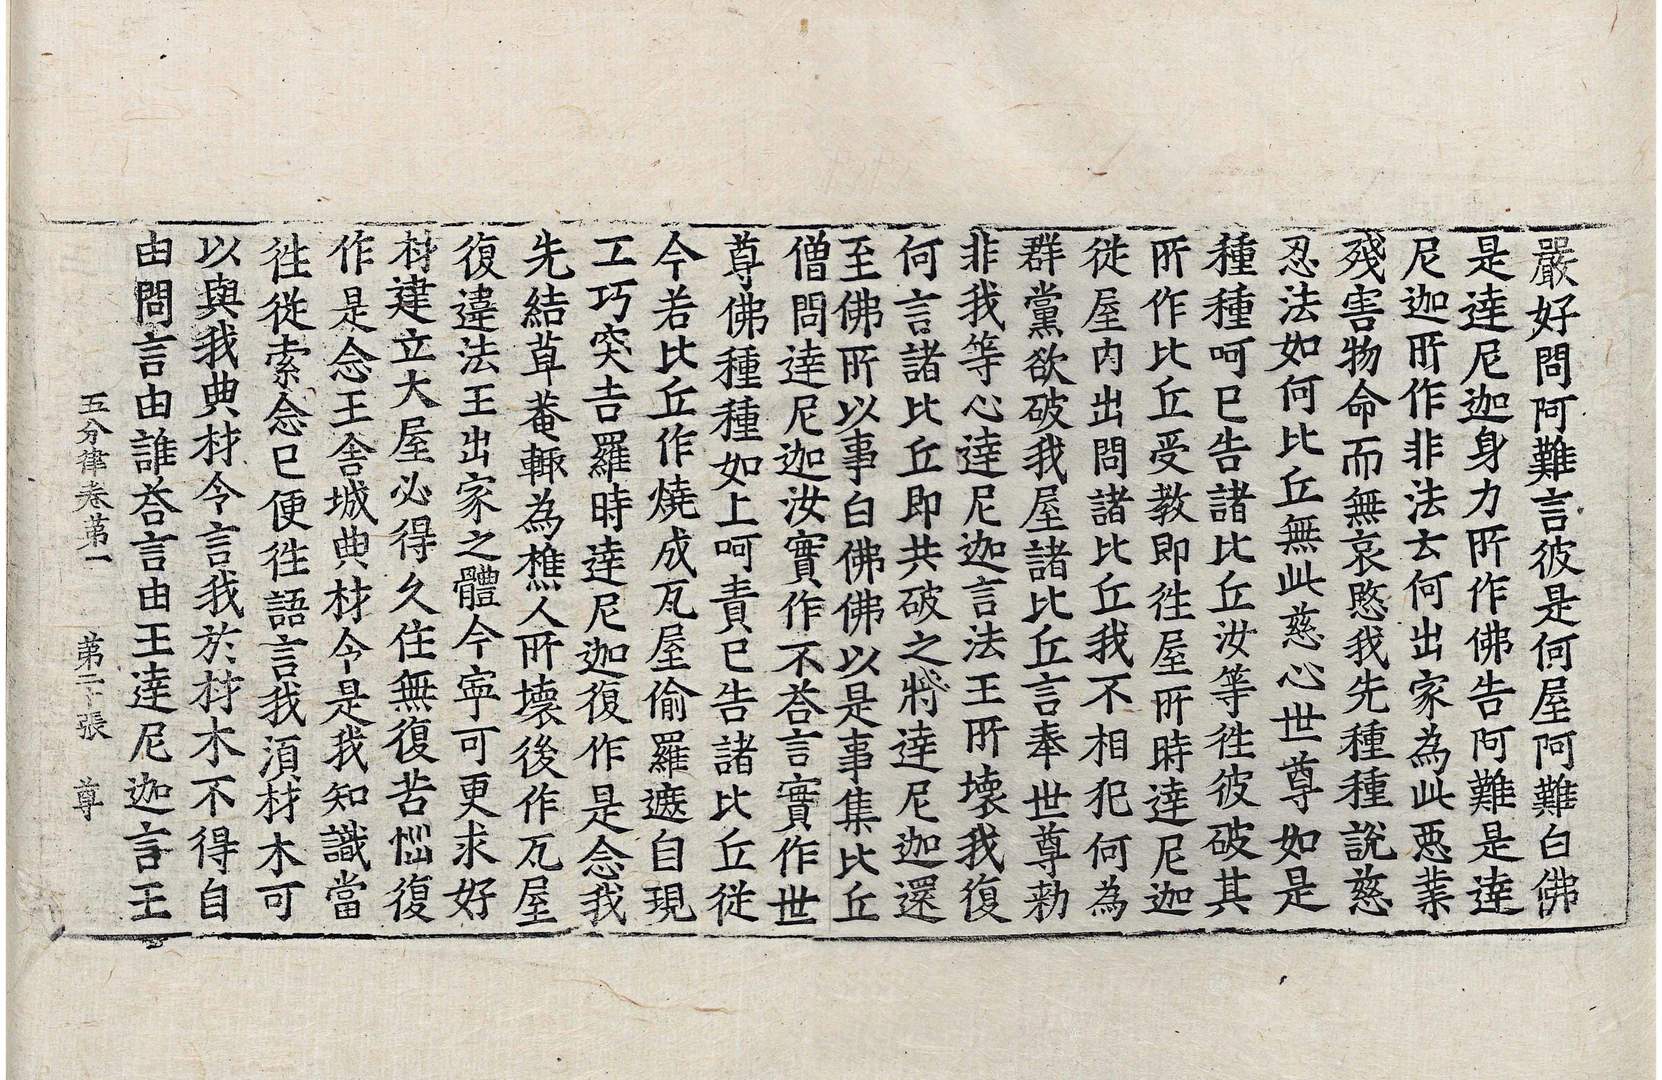 嚴好問阿難言彼是何屋阿難白佛
是達尼迦身力所作佛告阿難是達
尼迦所作非法云何出家為此惡業
殘害物命而無哀愍我先種種說慈
忍法如何比丘無此慈心世尊如是
種種呵已告諸比丘汝等往彼破其
所作比丘受教即往屋所時達尼迦
從屋内出問諸比丘我不相犯何為
群黨欲破我屋諸比丘言奉世尊勑
非我等心達尼迦言法王所壞我復
何言諸比丘即共破之將達尼迦還
至佛所以事白佛佛以是事集比丘
僧問達尼迦汝實作不荅言實作世
尊佛種種如上呵責已告諸比丘從
今若比丘作燒成瓦屋偷羅遮自現
工巧突吉羅時達尼迦復作是念我
先結草菴輙為樵人所壞後作瓦屋
復違法王出家之體今寧可更求好
材建立大屋必得久住無復苦惱復
作是念王舍城典材令是我知識當
往從索念已便往語言我須材木可
以與我典材令言我於材木不得自
由問言由誰荅言由王達尼迦言王
五分律卷第一　第二十張　尊